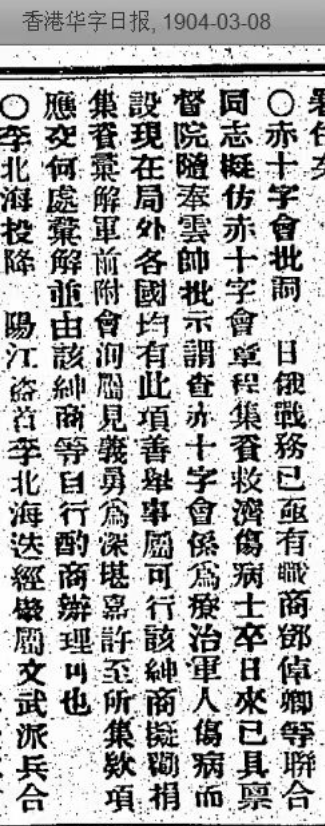 香港华字日报, 1904-03-08
署任文
○赤十字會批詞　日俄戰務已亟有職商鄧倬卿等聯合
同志擬仿赤十字會章程集資救濟傷病士卒日來已具稟
督院隨奉雲帥批示謂查赤十字會係爲療治軍人傷病而
設現在局外各國均有此項善舉事屬可行該紳商擬勸捐
集資彙解軍前附會洵屬見義勇爲深堪嘉許至所集欵項
應交何處彙解並由該紳商等自行酌商辦理可也
○李北海投降　陽江盜首李北海迭經嚴屬文武派兵合